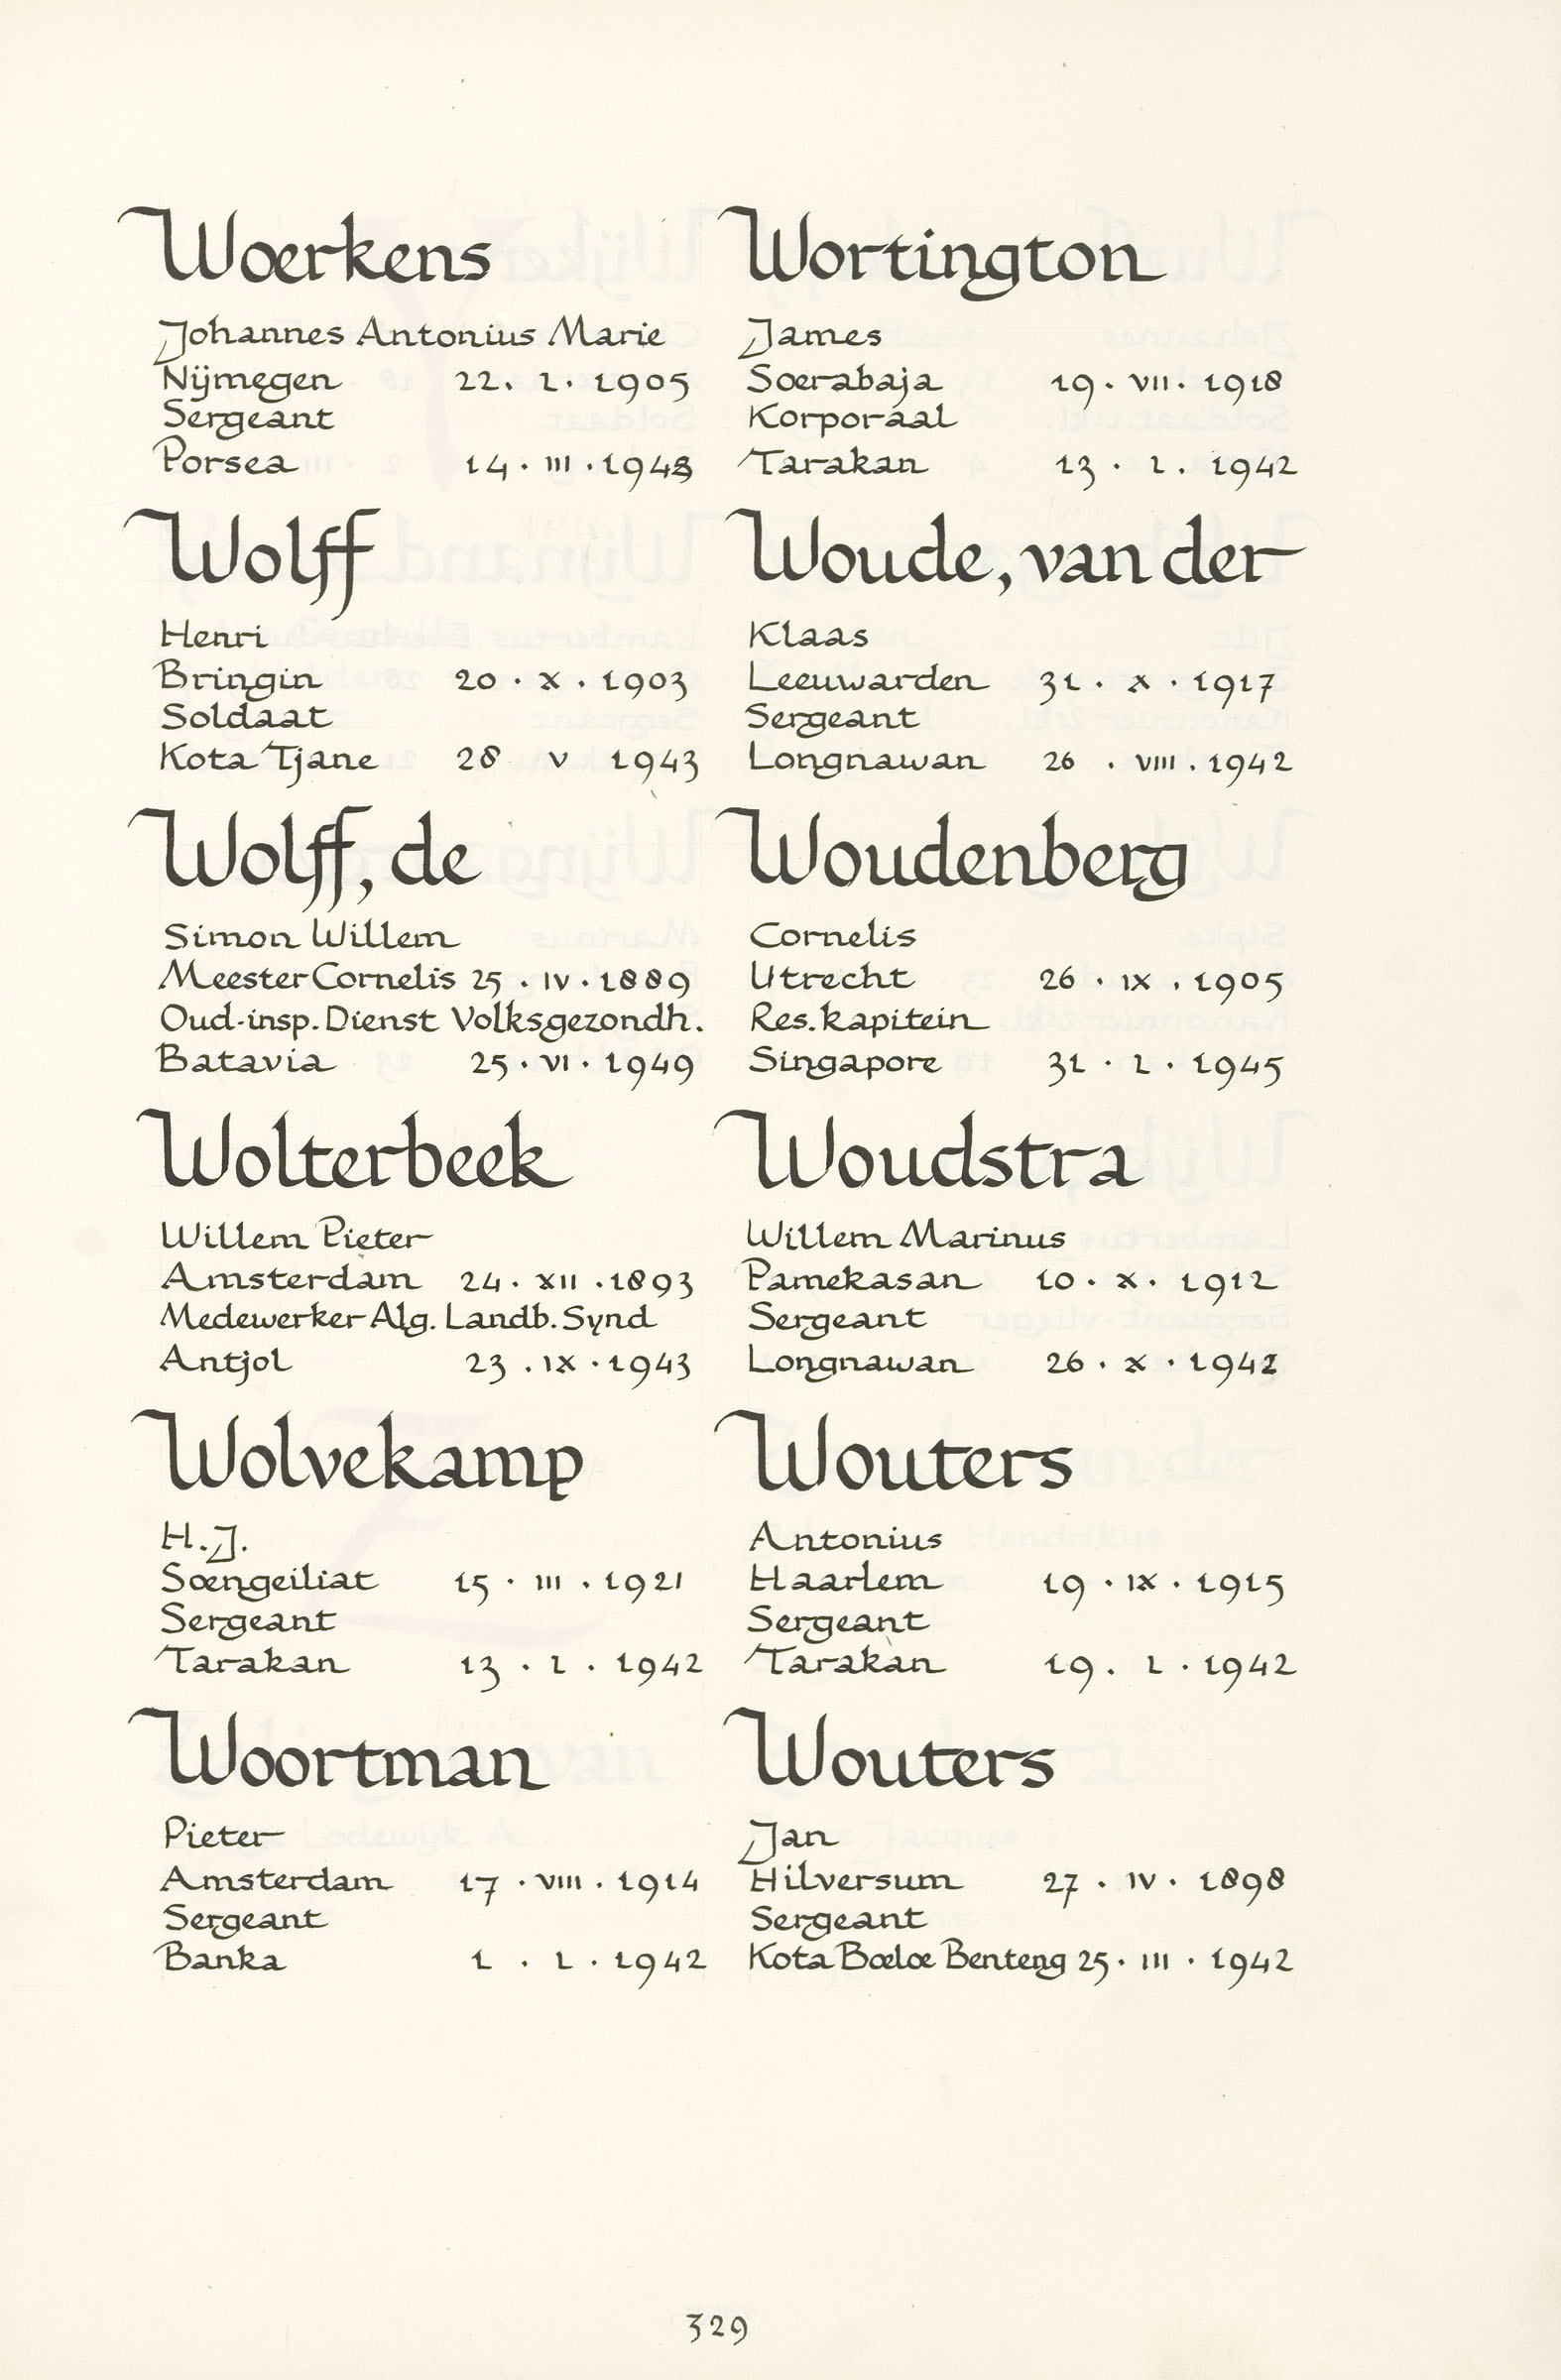 Woerkens
Johannes Antonius Marie
Nijmegen 22. I. 1905
Sergeant
Porsea 14. III. 1943
Wolff
Henri
Bringin 20. X. 1903
Soldaat
Kota Tjane 28 V 1943
Wolff, de
Simon Willem
Meester Cornelis 25. IV. 1889
Oud-insp. Dienst Volksgezondh.
Batavia 25. VI. 1949
Wolterbeek
Willem Pieter
Amsterdam 24. XII. 1893
Medewerker Alg. Landb. Synd
Antjol 23. IX. 1943
Wolvekamp
H.J.
Soengeiliat 15. III. 1921
Sergeant
Tarakan 13. I. 1942
Woortman
Pieter
Amsterdam 17. VIII. 1914
Sergeant
Banka 1. I. 1942
Wortington
James
Soerabaja 19. VII. 1918
Korporaal
Tarakan 13. I. 1942
Woude, van der
Klaas
Leeuwarden 31. X. 1917
Sergeant
Longnawan 26. VIII. 1942
Woudenberg
Cornelis
Utrecht 26. IX. 1905
Res. kapitein
Singapore 31. I. 1945
Woudstra
Willem Marinus
Pamekasan 10. X. 1912
Sergeant
Longnawan 26. X. 1942
Wouters
Antonius
Haarlem 19. IX. 1915
Sergeant
Tarakan 19. I. 1942
Wouters
Jan
Hilversum 27. IV. 1898
Sergeant
Kota Boeloe Benteng 25. III. 1942
329